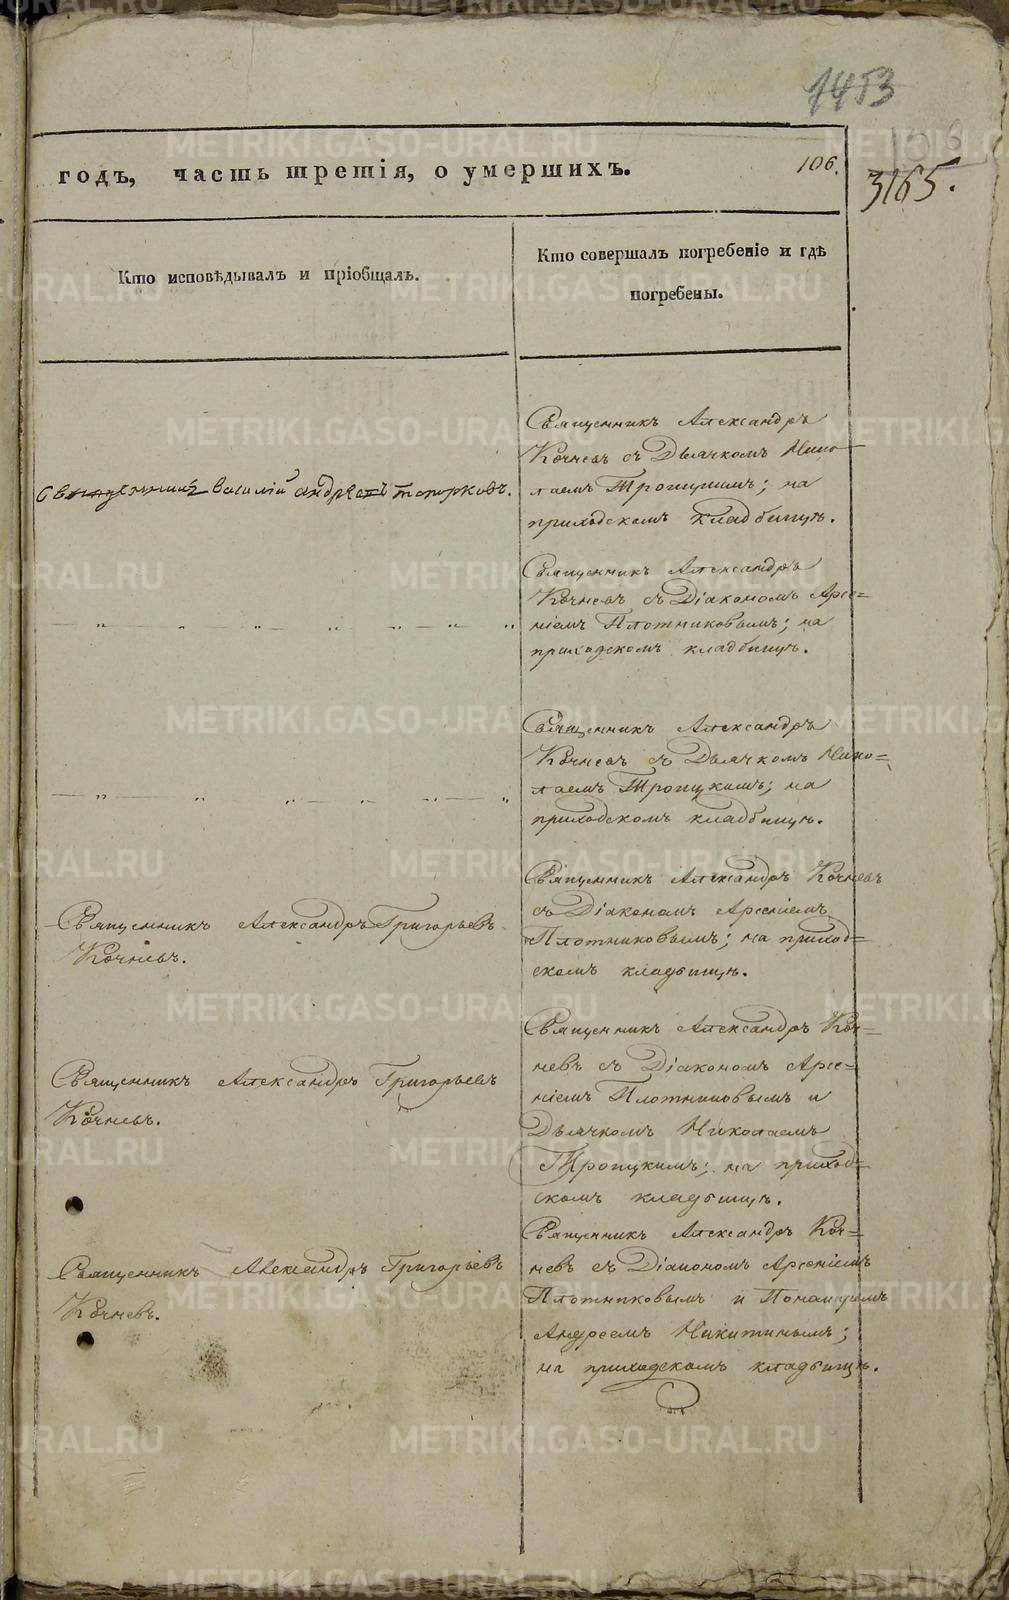 1453
106.
3165.
годъ, часть третія, о умершихъ.
Кто исповѣдывалъ и пріобщалъ.
Кто совершалъ погребеніе и гдѣ
погребены.
Священникъ Василій Андреевъ
Священникъ Александръ
Кочневъ съ Дьячкомъ Нико
лаемъ Троицкимъ; на
приходскомъ кладбищѣ.
Священникъ Александръ
Кочневъ съ Діакономъ Арсе=
ніемъ Плотниковымъ; на
приходскомъ кладбищѣ.
Священникъ Александръ
Кочневъ съ Дьячкомъ Нико=
лаемъ Троицкимъ; на
приходскомъ кладбищѣ.
Священникъ Александръ Григорьевъ
Кочневъ.
Священникъ Александръ Кочневъ
съ Діакономъ Арсеніемъ
Плотниковымъ; на приход=
скомъ кладбищѣ.
Священникъ Александръ Григорьевъ
Кочневъ.
Священникъ Александръ Коч=
невъ съ Діакономъ Арсе=
ніемъ Плотниковымъ и
Дьячкомъ Николаемъ
Троицкимъ; на приход=
скомъ кладбищѣ.
Священникъ Александръ Григорьевъ
Кочневъ.
Священникъ Александръ Коч=
невъ съ Діакономъ Арсеніемъ
Плотниковымъ и Пономаремъ
Андреемъ Никитинымъ;
на приходскомъ кладбищѣ.
METRIKI.GASO-URAL.RU